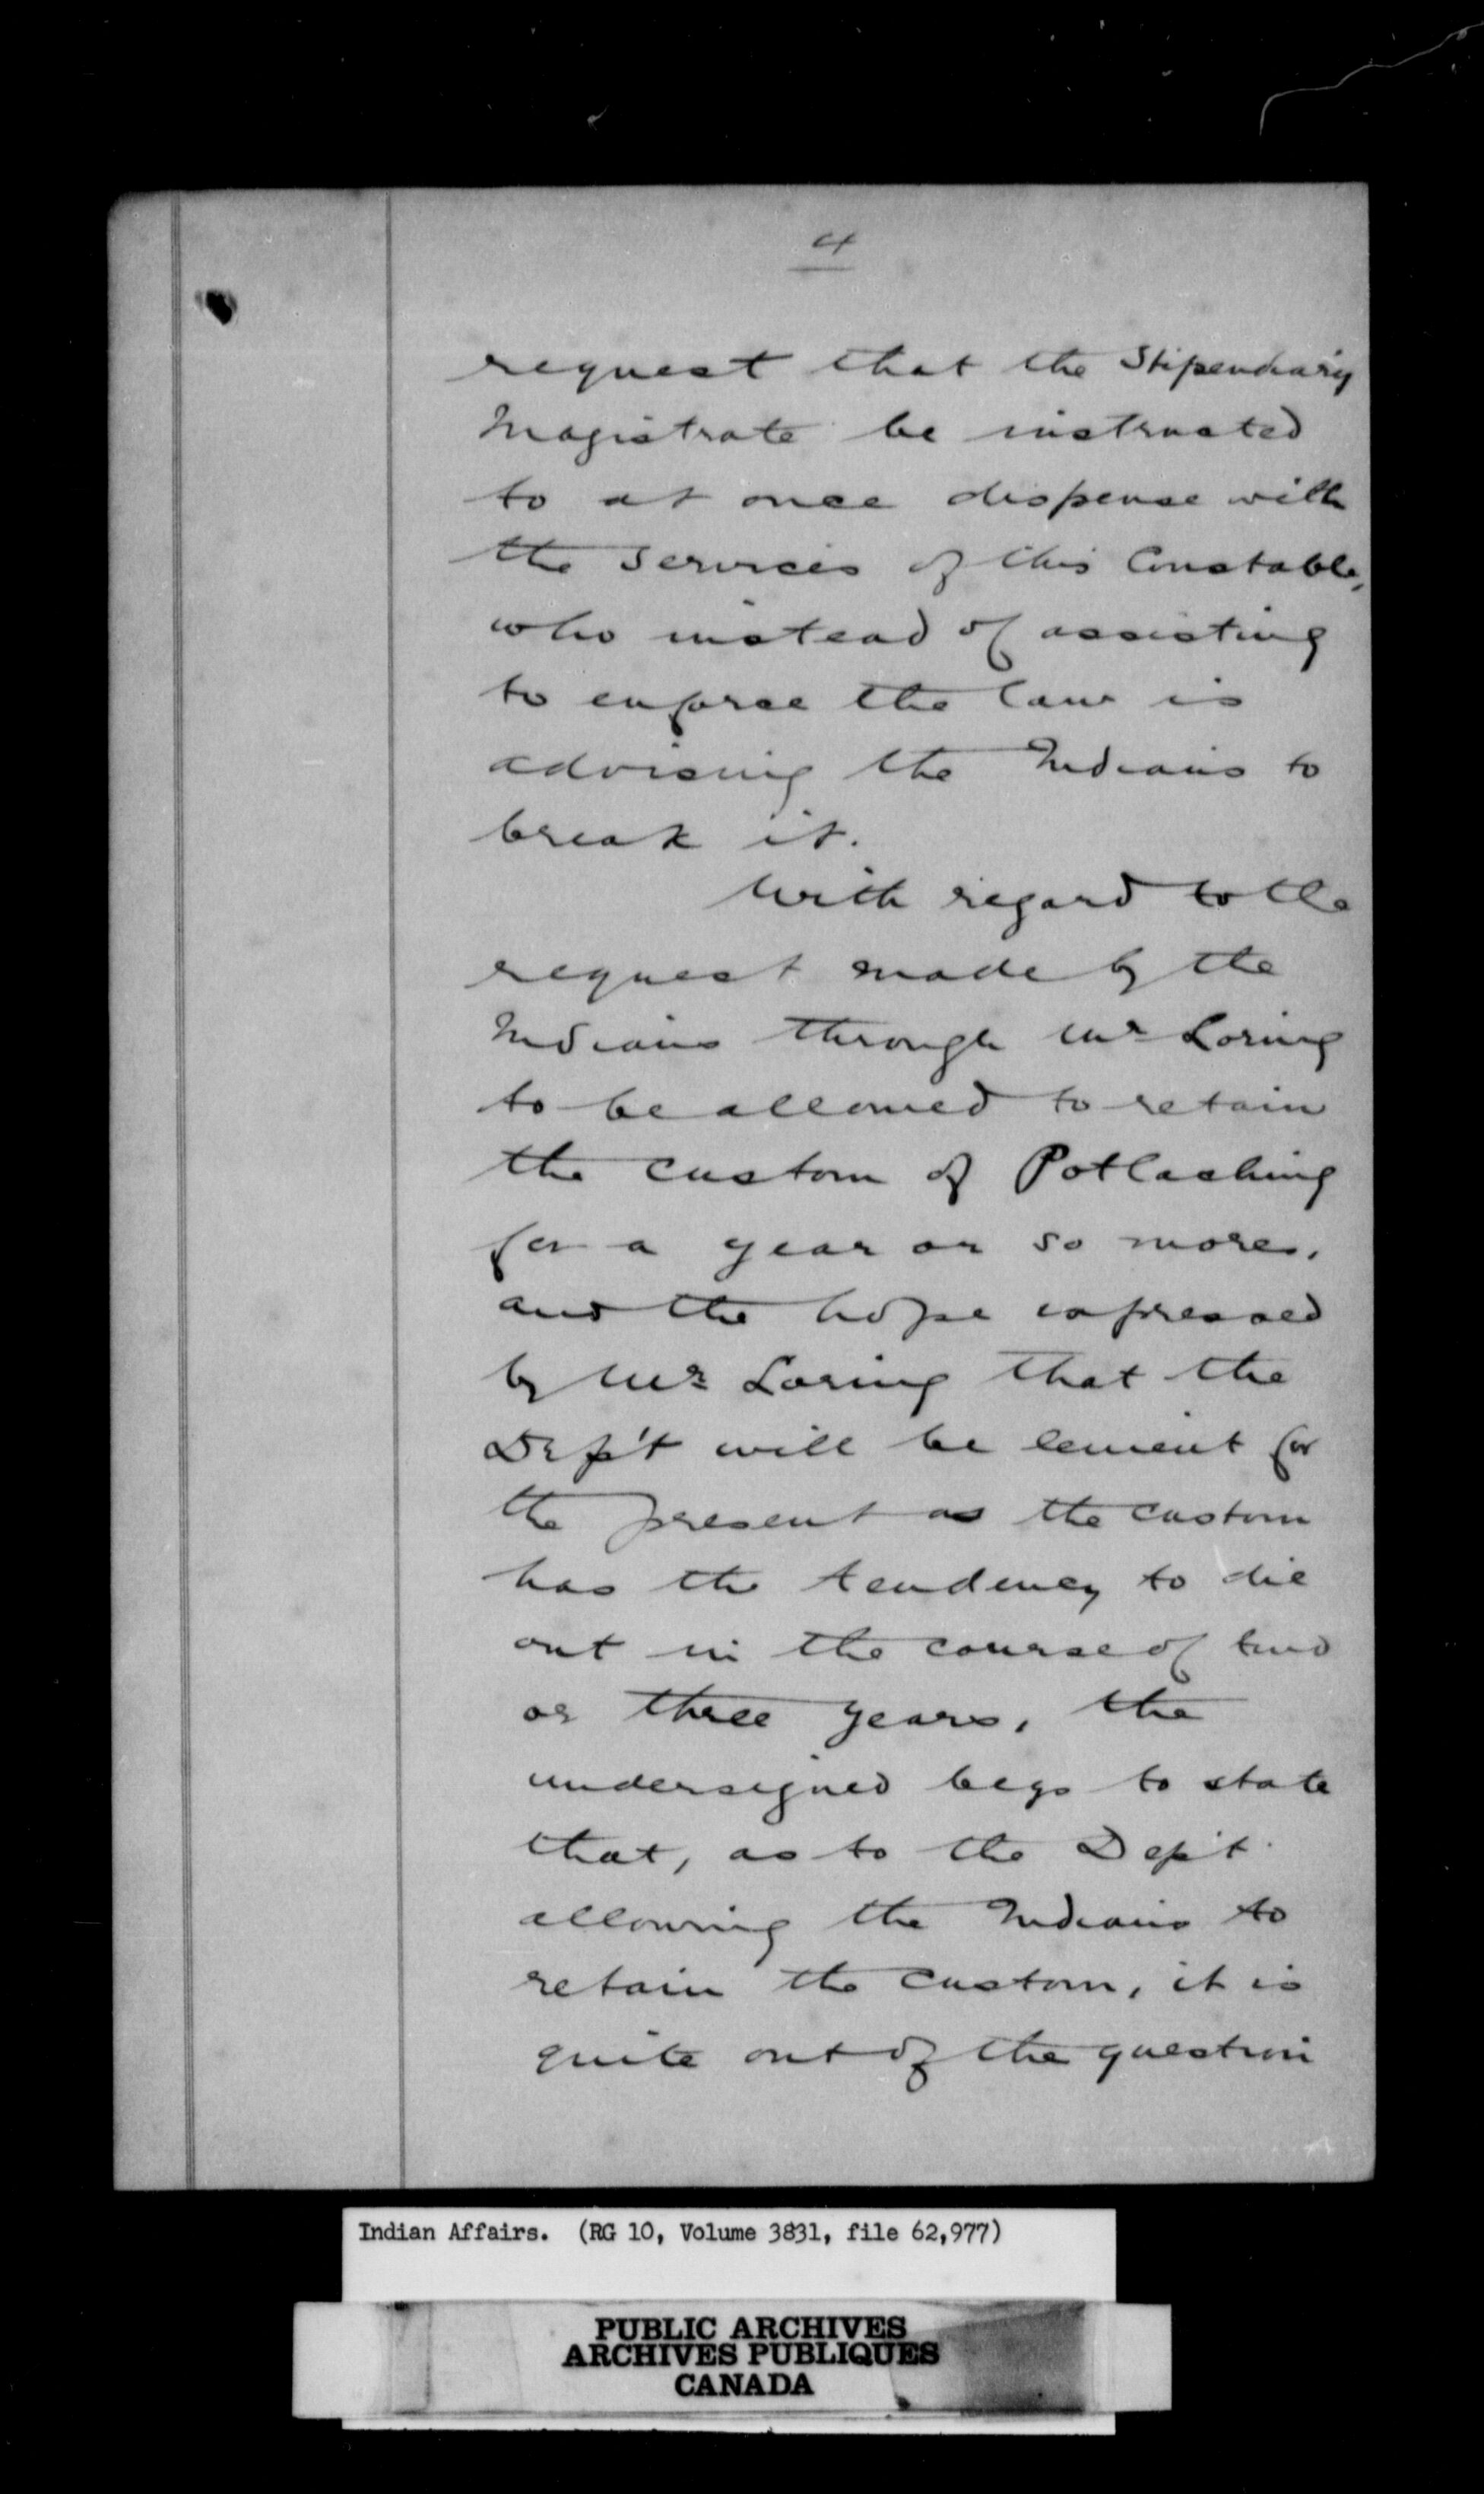 4
request that the Stipendiary
Magistrate be instructed
to at once dispense with
the services of this Constable,
who instead of assisting
to enforce the law is
advising the Indians to
break it.
With regard to the
request made by the
Indians through Mr Loring
to be allowed to retain
the custom of Potlaching
for a year or so more,
and the hope expressed
by Mr Loring that the
Dep't will be lenient for
the present as the custom
has the tendency to die
out in the course of two
or three years, the
undersigned begs to state
that, as to the Dep't
allowing the Indians to
retain the custom, it is
quite out of the question
Indian Affairs. (RG 10, Volume 3831, file 62,977)
PUBLIC ARCHIVES
ARCHIVES PUBLIQUES
CANADA